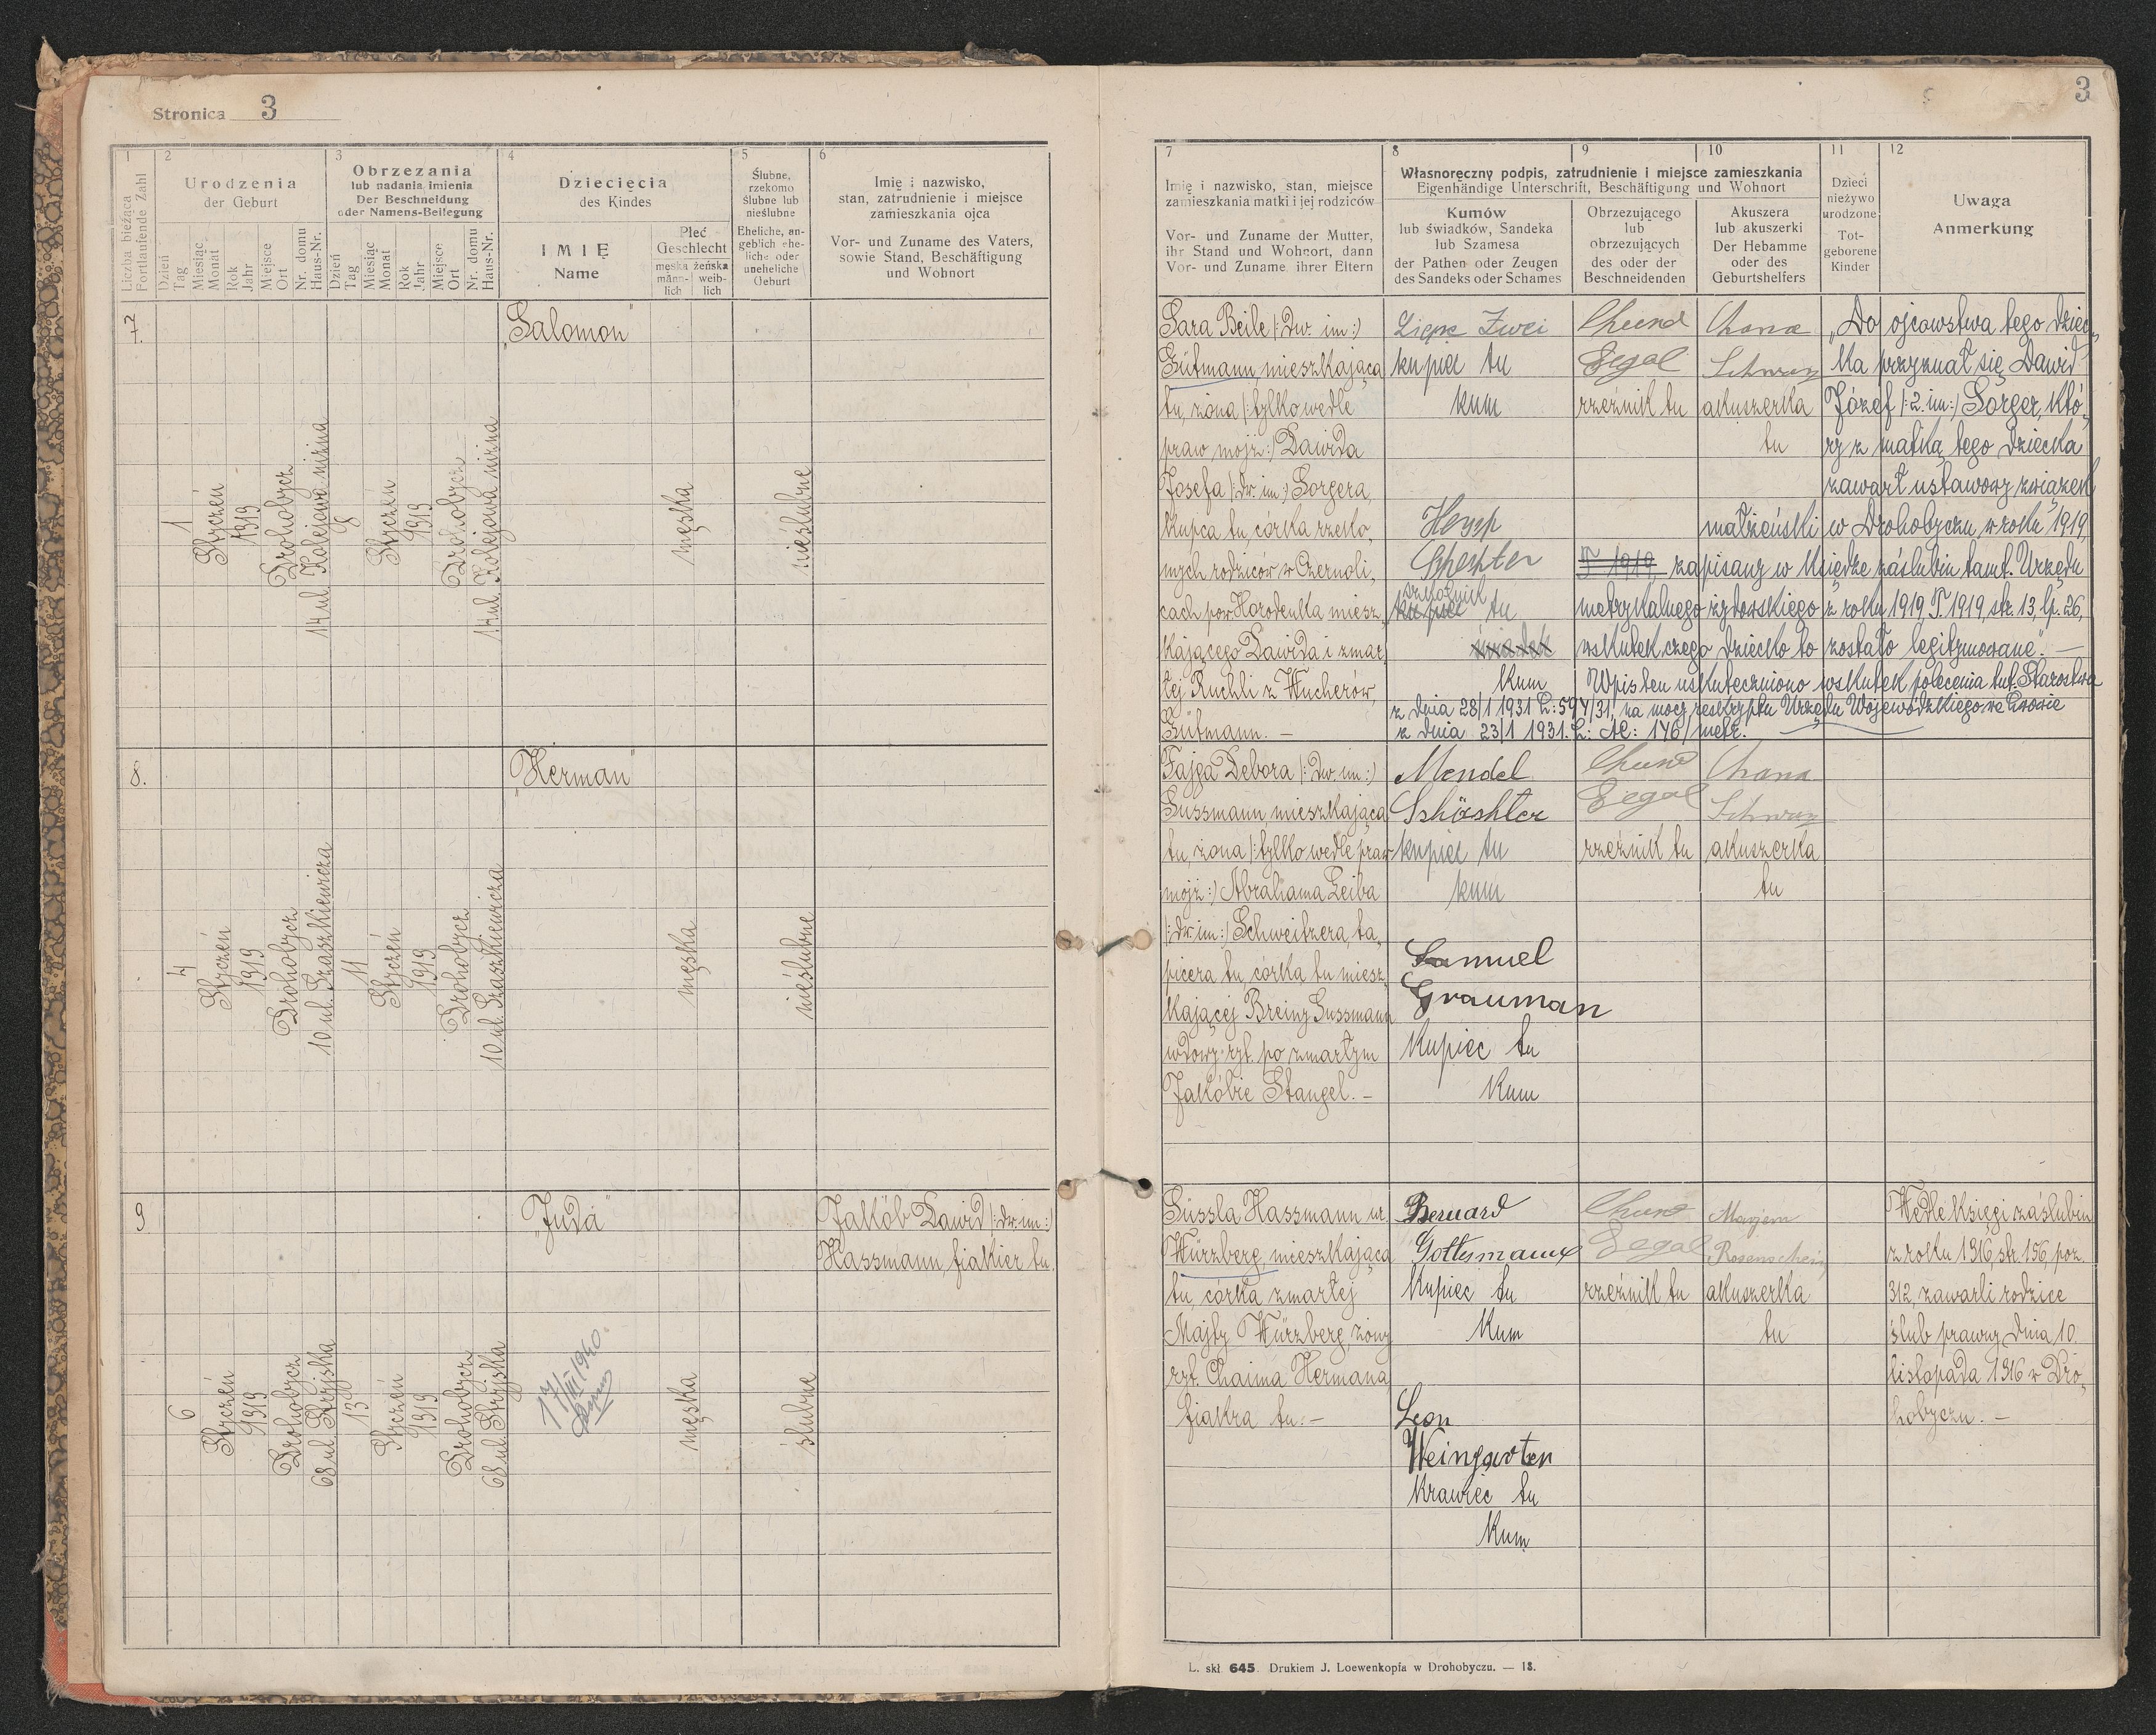 Stronica 3
3
1
Liczba bieżąca
Fortlaufende Zahl
2
Urodzenia
der Geburt
Dzień
Tag
Miesiąc
Monat
Rok
Jahr
Miejsce
Ort
Nr. domu
Haus-Nr.
3
Obrzezania
lub nadania imienia
Der Beschneidung
oder Namens-Beilegung
Dzień
Tag
Miesiąc
Monat
Rok
Jahr
Miejsce
Ort
Nr. domu
Haus-Nr.
4
Dziecięcia
des Kindes
IMIĘ
Name
Płeć
Geschlecht
męska
männ-
lich
żeńska
weib-
lich
5
Ślubne,
rzekomo
ślubne lub
nieślubne
Eheliche, an-
geblich ehe-
liche oder
uneheliche
Geburt
6
Imię i nazwisko,
stan, zatrudnienie i miejsce
zamieszkania ojca
Vor- und Zuname des Vaters,
sowie Stand, Beschäftigung
und Wohnort
7
Imię i nazwisko, stan, miejsce
zamieszkania matki i jej rodziców
Vor- und Zuname der Mutter,
ihr Stand und Wohnort, dann
Vor- und Zuname ihrer Eltern
8
9
10
Własnoręczny podpis, zatrudnienie i miejsce zamieszkania
Eigenhändige Unterschrift, Beschäftigung und Wohnort
Kumów
lub świadków, Sandeka
lub Szamesa
der Pathen oder Zeugen
des Sandeks oder Schames
Obrzezującego
lub
obrzezujących
des oder der
Beschneidenden
Akuszera
lub akuszerki
Der Hebamme
oder des
Geburtshelfers
11
Dzieci
nieżywo
urodzone
Tot-
geborene
Kinder
12
Uwaga
Anmerkung
7.
1
Styczeń
1919
Drohobycz
14 ul. Kolejowa niżna
8
Styczeń
1919
Drohobycz
14 ul. Kolejowa niżna
"Salomon"
męska
nieślubne
Sara Beile (: dw. im :)
Gutmann, mieszkająca
tu, żona (: tylko wedle
praw mojż :) Dawida
Josefa (: dw. im :) Sorgera,
kupca tu, córka rzeko,
mych rodziców w Czernoli,
cach pow. Horodenka miesz,
kającego Dawida i zmar,
łej Ruchli z Wucherów,
Gutmann. –
kupiec tu
kum
szkolnik
kupiec tu
świadek
kum
Segal
rzeźnik tu
Chana
Schwarz
akuszerka
tu
"Do ojcowstwa tego dziec,
ka przyznał się Dawid
Józef (: 2. im :) Sorger, któ,
ry z matką tego dziecka
zawarł ustawowy związek
małżeński w Drohobyczu, w roku 1919,
T 1919 zapisany w księdze zaślubin tamt. Urzędu
metrykalnego żydowskiego z roku 1919, T. 1919, str. 13, lp. 26,
wskutek czego dziecko to zostało legitymowane". –
Wpis ten uskuteczniono wskutek polecenia tut. Starostwa
z dnia 28/1 1931 L: 594/31, na mocy reskryptu Urzędu Wojewódzkiego we Lwowie
z dnia 23/1 1931. L: AC: 146/metr.
8.
4
Styczeń
1919
Drohobycz
10 ul. Szaszkiewicza
11
Styczeń
1919
Drohobycz
10 ul. Szaszkiewicza
"Herman"
męska
nieślubne
Fajga Debora (: dw. im :)
Sussmann mieszkająca
tu, żona (: tylko wedle praw
mojż :) Abrahama Leiba
(: dw. im :) Schweitzera, ta,
picera tu, córka tu miesz,
kającej Breiny Sussmann
wdowy ryt. po zmarłym
Jakóbie Stangel. –
Mendel
kupiec tu
kum
Samuel
Grauman
kupiec tu
kum
Segal
rzeźnik tu
Chana
Schwarz
akuszerka
tu
9
6
Styczeń
1919
Drohobycz
68 ul. Stryjska
13
Styczeń
1919
Drohobycz
68 ul. Stryjska
"Juda"
17/III 1940.
męska
ślubne
Jakób Dawid (: dw. im :)
Hassmann, fiakier tu.
Süssla Hassmann ur.
Würzberg, mieszkająca
tu, córka zmarłej
Majty Würzberg, żony
ryt. Chaima Hermana,
fiakra tu. –
Bernard
kupiec tu
kum
Leon
Weingarten
krawiec tu
kum
Segal
rzeźnik tu
Marjem
Rosenschein
akuszerka
tu
Wedle księgi zaślubin
z roku 1916, str. 156, poz.
312, zawarli rodzice
ślub prawny dnia 10.
listopada 1916 w Dro,
hobyczu. –
L. skł. 645. Drukiem J. Loewenkopfa w Drohobyczu. — 18.